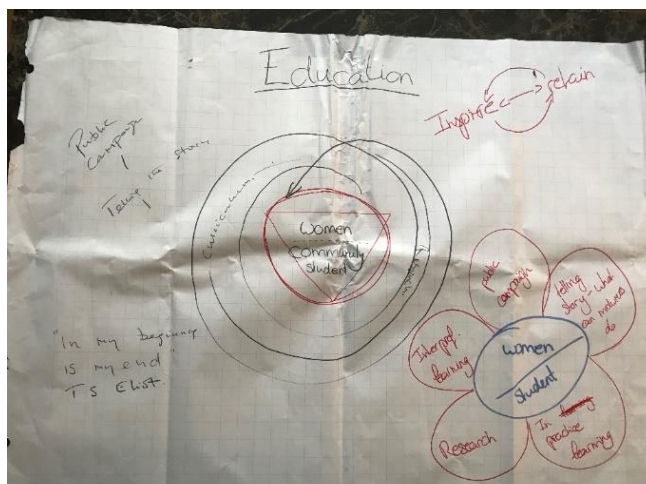 Education
Inspire
retain
Public
Campaign
Telling the story
Curriculum
Women
Community
student
"In my beginning
is my end"
TS Eliot.
public
campaign
telling
story - what
can midwives
do
Interprof.
learning
women
student
Research
In
practice
learning